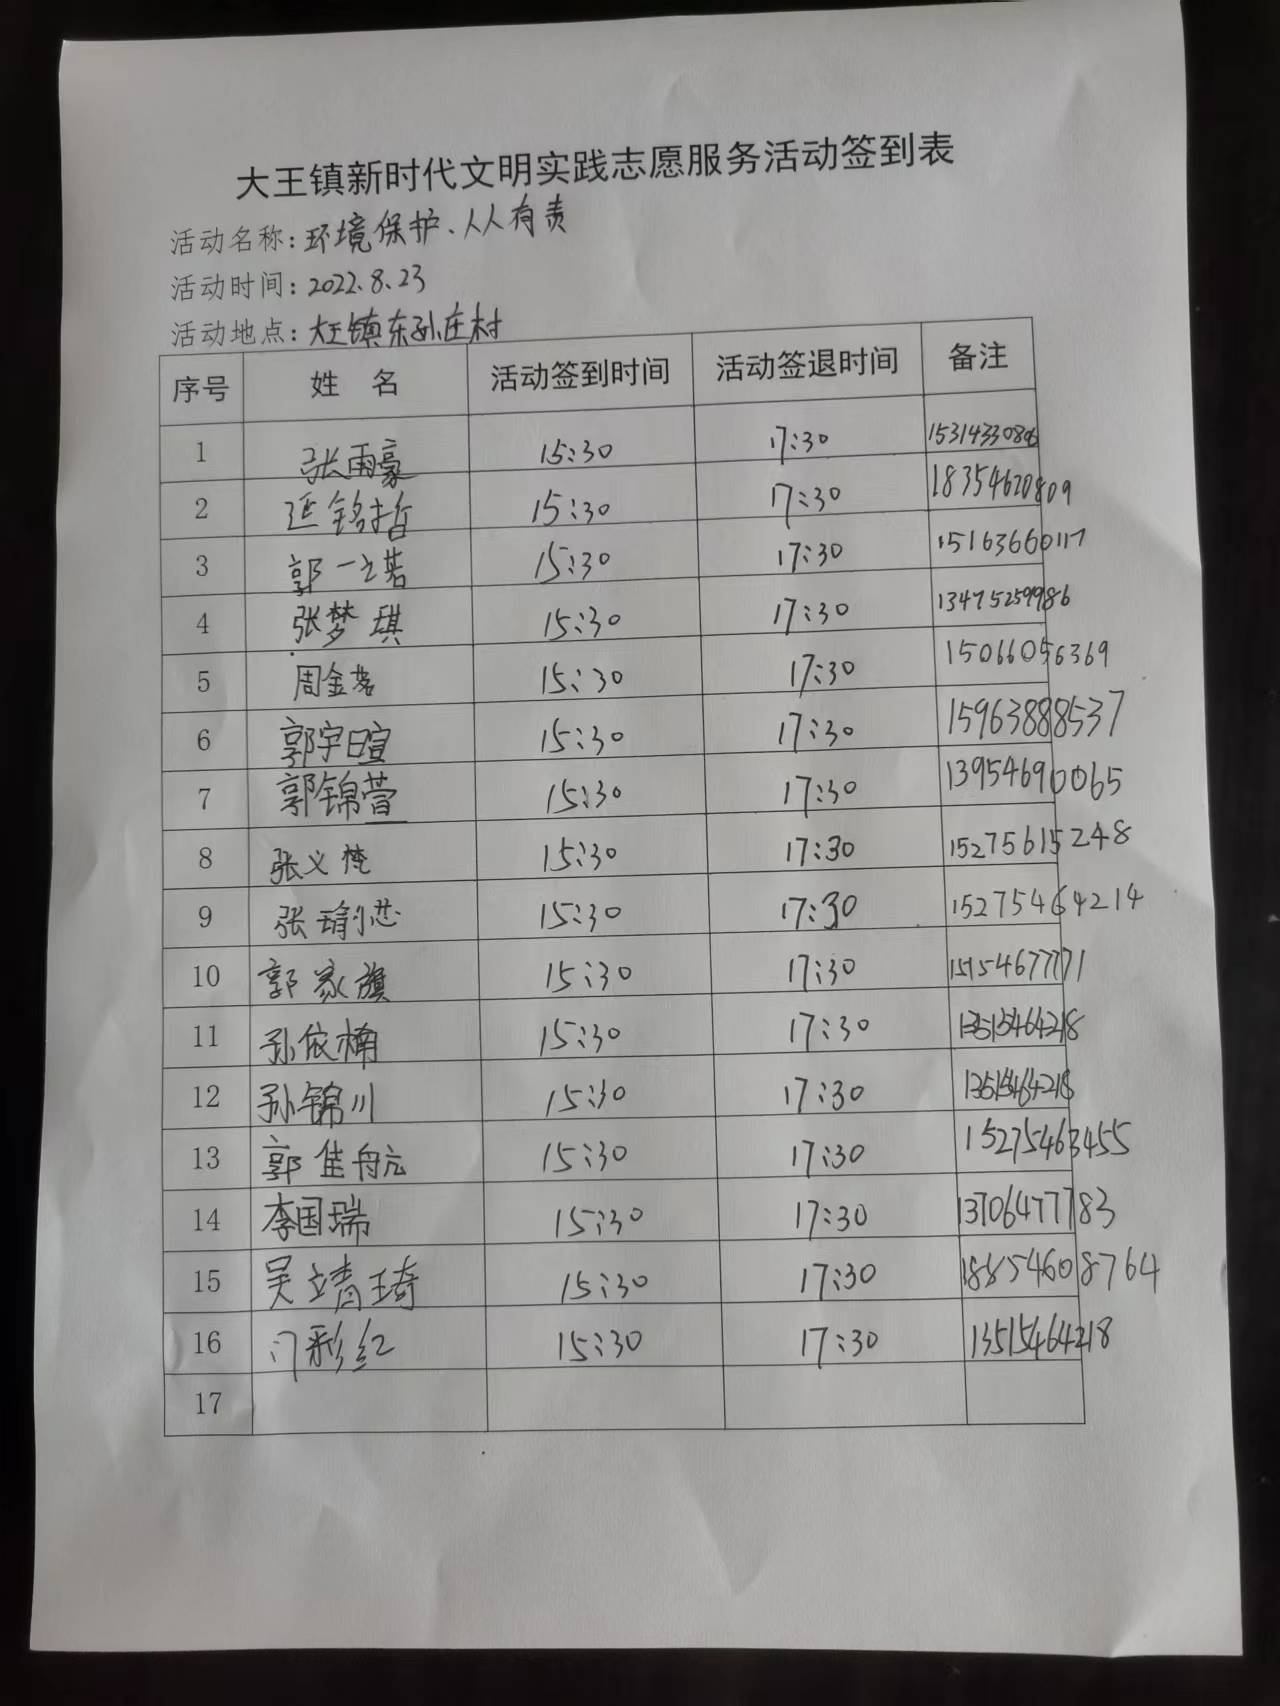 大王镇新时代文明实践志愿服务活动签到表
活动名称：环境保护、人人有责
活动时间：2022.8.23
活动地点：大王镇东孙庄村
序号 姓 名 活动签到时间 活动签退时间 备注
1 张雨豪 15:30 17:30 15314330806
2 延铭哲 15:30 17:30 18354620809
3 郭一诺 15:30 17:30 15163660117
4 张梦琪 15:30 17:30 13475259986
5 周金茗 15:30 17:30 15066056369
6 郭宇暄 15:30 17:30 15963888537
7 郭锦萱 15:30 17:30 13954690065
8 张义 15:30 17:30 15275615248
9 张芯 15:30 17:30 15275464214
10 郭家旗 15:30 17:30 15154677771
11 孙依楠 15:30 17:30 13515464218
12 孙锦川 15:30 17:30 13515464218
13 郭佳航 15:30 17:30 15275463455
14 李国瑞 15:30 17:30 13706477783
15 吴靖琦 15:30 17:30 18854608764
16 门彩红 15:30 17:30 13515464218
17